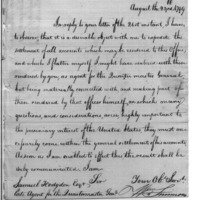 August the 23rd 1799
In reply to your letter of the 21st instant I have
to observe, that it is a desirable object with me to expedite the
settlement of all accounts which may be rendered to this Office,
and which I flatter myself I might have realized with those
rendered by you, as agent for the Quarter master General
but being materially connected with, and making part of
those rendered by that officer himself, on which so many
questions and considerations arise, highly important to the
pecuniary interest of the United States they must ne-
cessarily come within the general settlement of his accounts
As soon as I am enabled to effect this the result shall be
duly communicated. I am
Sir
Your Obt Servt
Samuel Hodgdon Esqr
Wm Simmons
late Agent for the Quartermaster Genl